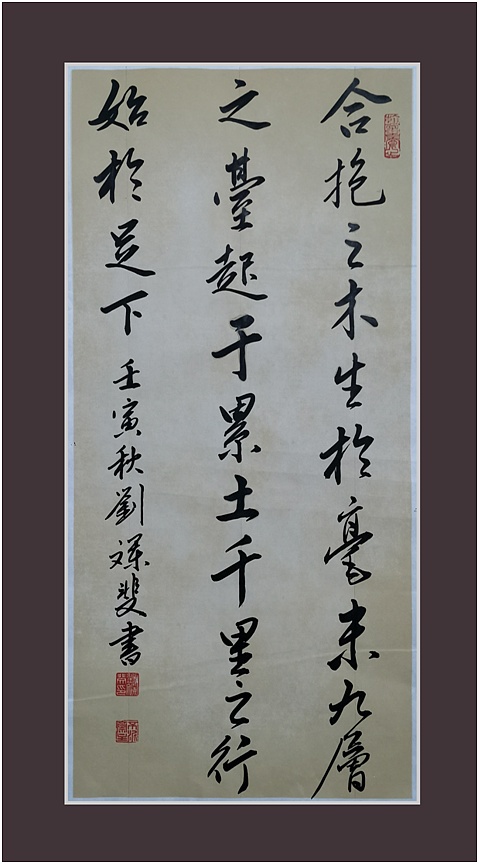 合抱之木生於毫末九層
之臺起于累土千里之行
始於足下 壬寅秋劉
書